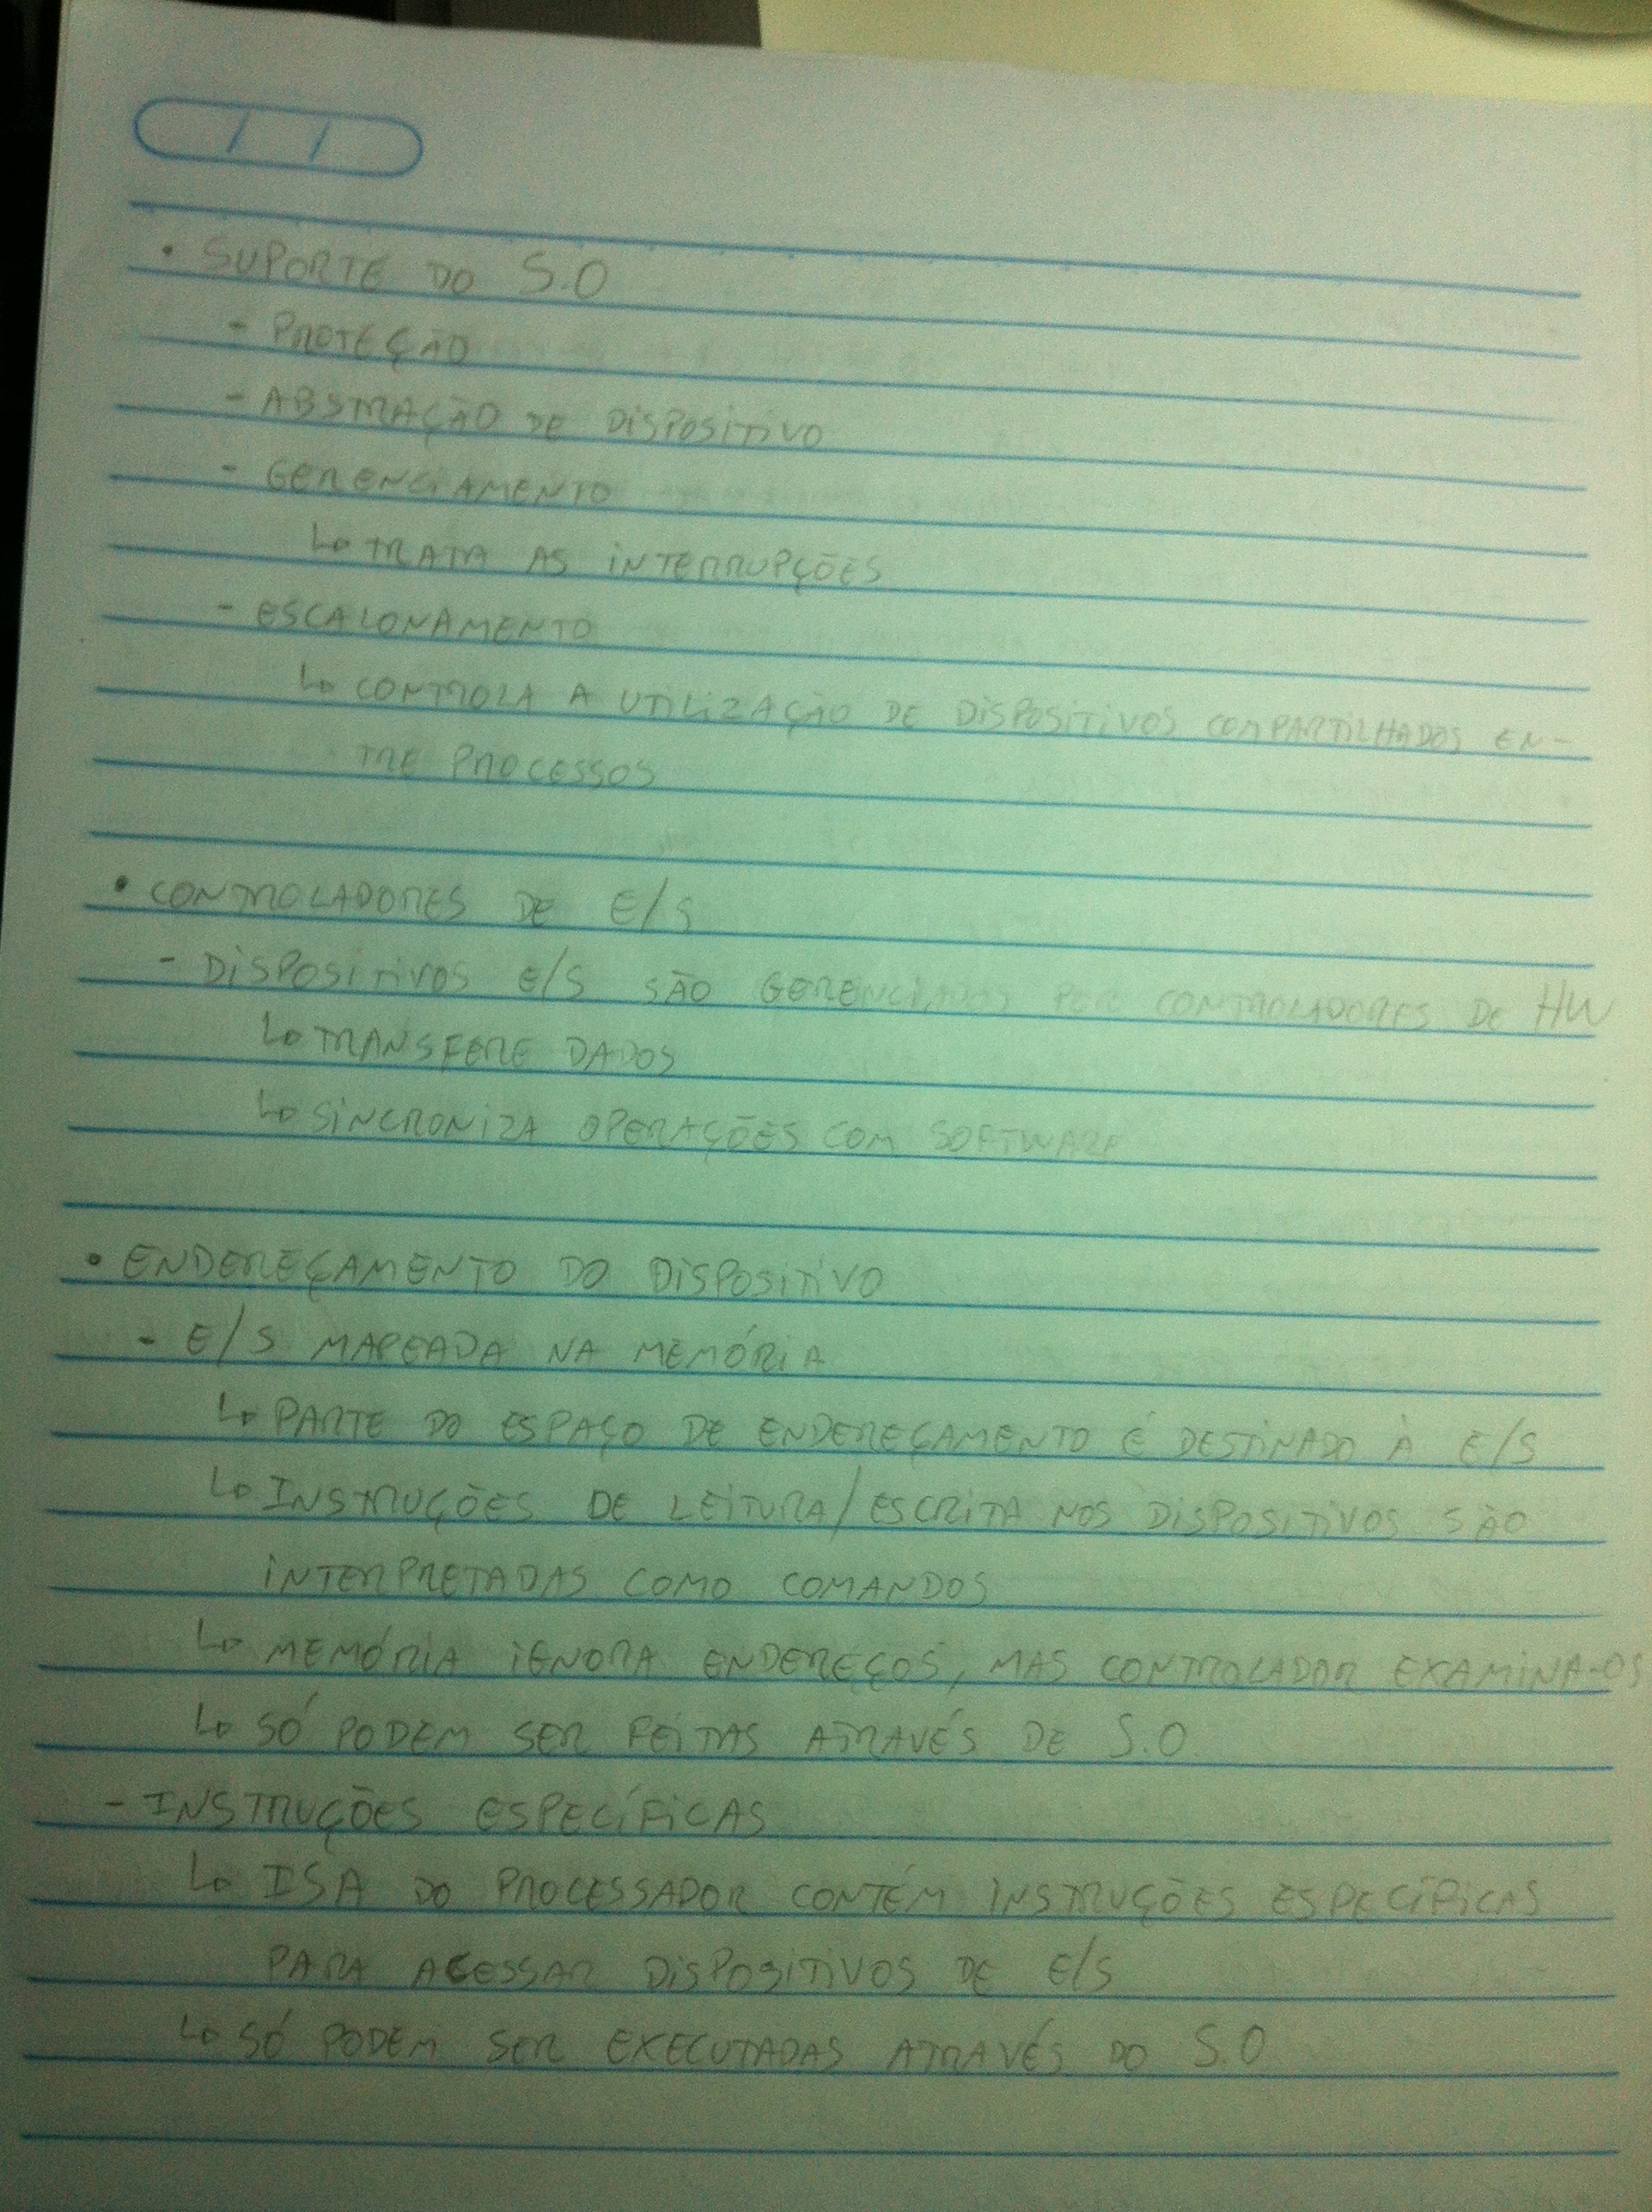 • SUPORTE DO S.O
- PROTEÇÃO
- ABSTRAÇÃO DE DISPOSITIVO
- GERENCIAMENTO
↳ TRATA AS INTERRUPÇÕES
- ESCALONAMENTO
↳ CONTROLA A UTILIZAÇÃO DE DISPOSITIVOS COMPARTILHADOS EN-
TRE PROCESSOS
• CONTROLADORES DE E/S
- DISPOSITIVOS E/S SÃO GERENCIADOS POR CONTROLADORES DE HW
↳ TRANSFERE DADOS
↳ SINCRONIZA OPERAÇÕES COM SOFTWARE
• ENDEREÇAMENTO DO DISPOSITIVO
- E/S MAPEADA NA MEMÓRIA
↳ PARTE DO ESPAÇO DE ENDEREÇAMENTO É DESTINADO À E/S
↳ INSTRUÇÕES DE LEITURA/ESCRITA NOS DISPOSITIVOS SÃO
INTERPRETADAS COMO COMANDOS
↳ MEMÓRIA IGNORA ENDEREÇOS, MAS CONTROLADOR EXAMINA-OS
↳ SÓ PODEM SER FEITAS ATRAVÉS DE S.O.
- INSTRUÇÕES ESPECÍFICAS
↳ ISA DO PROCESSADOR CONTÉM INSTRUÇÕES ESPECÍFICAS
PARA ACESSAR DISPOSITIVOS DE E/S
↳ SÓ PODEM SER EXECUTADAS ATRAVÉS DO S.O